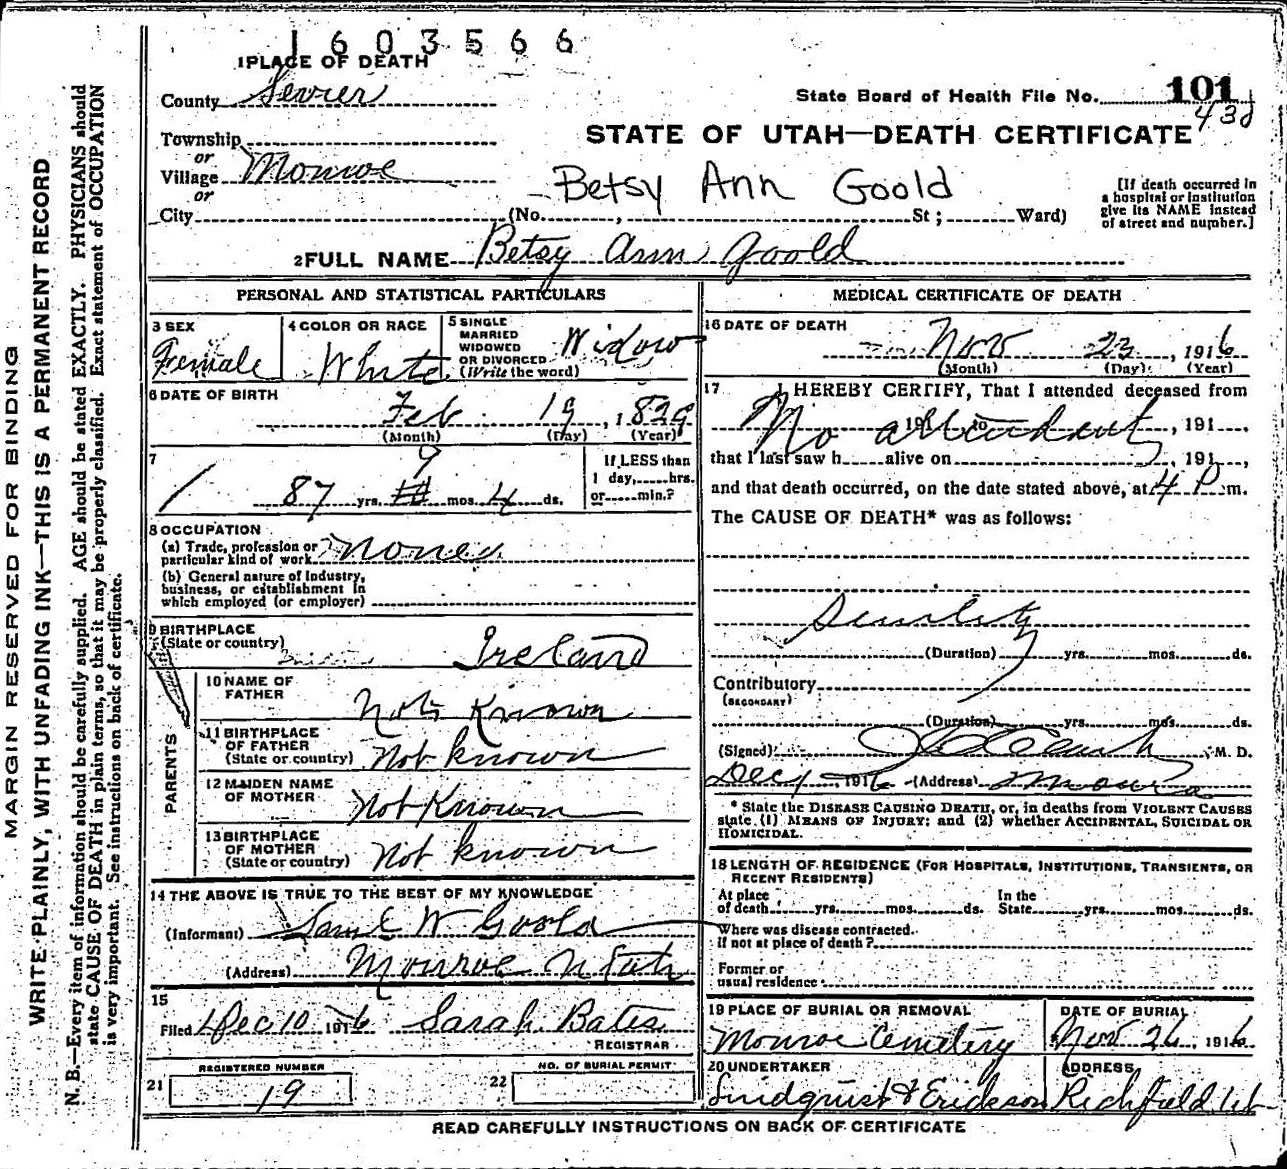 1603566
1 PLACE OF DEATH
County Sevier
State Board of Health File No. 101
430
Township
or
Village Monroe
or
City (No. , St ; Ward)
STATE OF UTAH—DEATH CERTIFICATE
Betsy Ann Goold
[If death occurred in
a hospital or institution
give its NAME instead
of street and number.]
2 FULL NAME Betsy Ann Goold
PERSONAL AND STATISTICAL PARTICULARS
3 SEX
Female
4 COLOR OR RACE
White
5 SINGLE
MARRIED
WIDOWED
OR DIVORCED
(Write the word)
Widow
6 DATE OF BIRTH
Feb 19, 1829
(Month) (Day) (Year)
7
9
87 yrs. mos. 4 ds.
If LESS than
1 day, hrs.
or min.?
8 OCCUPATION
(a) Trade, profession or
particular kind of work None
(b) General nature of industry,
business, or establishment in
which employed (or employer)
9 BIRTHPLACE
(State or country)
Ireland
PARENTS
10 NAME OF
FATHER
Not Known
11 BIRTHPLACE
OF FATHER
(State or country)
Not known
12 MAIDEN NAME
OF MOTHER
Not Known
13 BIRTHPLACE
OF MOTHER
(State or country)
Not known
14 THE ABOVE IS TRUE TO THE BEST OF MY KNOWLEDGE
(Informant) Saml W Goold
(Address) Monroe Utah
15
Filed Dec 10 1916 Sarah Bates
REGISTRAR
21
REGISTERED NUMBER
19
22
NO. OF BURIAL PERMIT
MEDICAL CERTIFICATE OF DEATH
16 DATE OF DEATH
Nov 23, 1916
(Month) (Day) (Year)
17 I HEREBY CERTIFY, That I attended deceased from
No attendant 191 to , 191 ,
that I last saw h alive on , 191 ,
and that death occurred, on the date stated above, at 4 P m.
The CAUSE OF DEATH* was as follows:
Senility
(Duration) yrs. mos. ds.
Contributory
(SECONDARY)
(Duration) yrs. mos. ds.
(Signed) M. D.
Dec 1916 (Address) Monroe
* State the DISEASE CAUSING DEATH, or, in deaths from VIOLENT CAUSES
state (1) MEANS OF INJURY; and (2) whether ACCIDENTAL, SUICIDAL OR
HOMICIDAL.
18 LENGTH OF RESIDENCE (FOR HOSPITALS, INSTITUTIONS, TRANSIENTS, OR
RECENT RESIDENTS)
At place
of death yrs. mos. ds.
In the
State yrs. mos. ds.
Where was disease contracted.
If not at place of death?
Former or
usual residence
19 PLACE OF BURIAL OR REMOVAL
Monroe Cemetery
DATE OF BURIAL
Nov 26, 1916
20 UNDERTAKER
Lindquist & Erickson
ADDRESS
Richfield Ut
READ CAREFULLY INSTRUCTIONS ON BACK OF CERTIFICATE
MARGIN RESERVED FOR BINDING
WRITE PLAINLY, WITH UNFADING INK—THIS IS A PERMANENT RECORD
N. B.—Every item of information should be carefully supplied. AGE should be stated EXACTLY. PHYSICIANS should
state CAUSE OF DEATH in plain terms, so that it may be properly classified. Exact statement of OCCUPATION
is very important. See instructions on back of certificate.